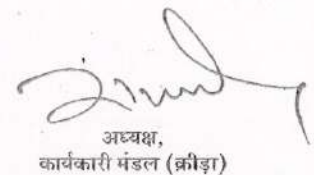 अध्यक्ष,
कार्यकारी मंडल (क्रीड़ा)